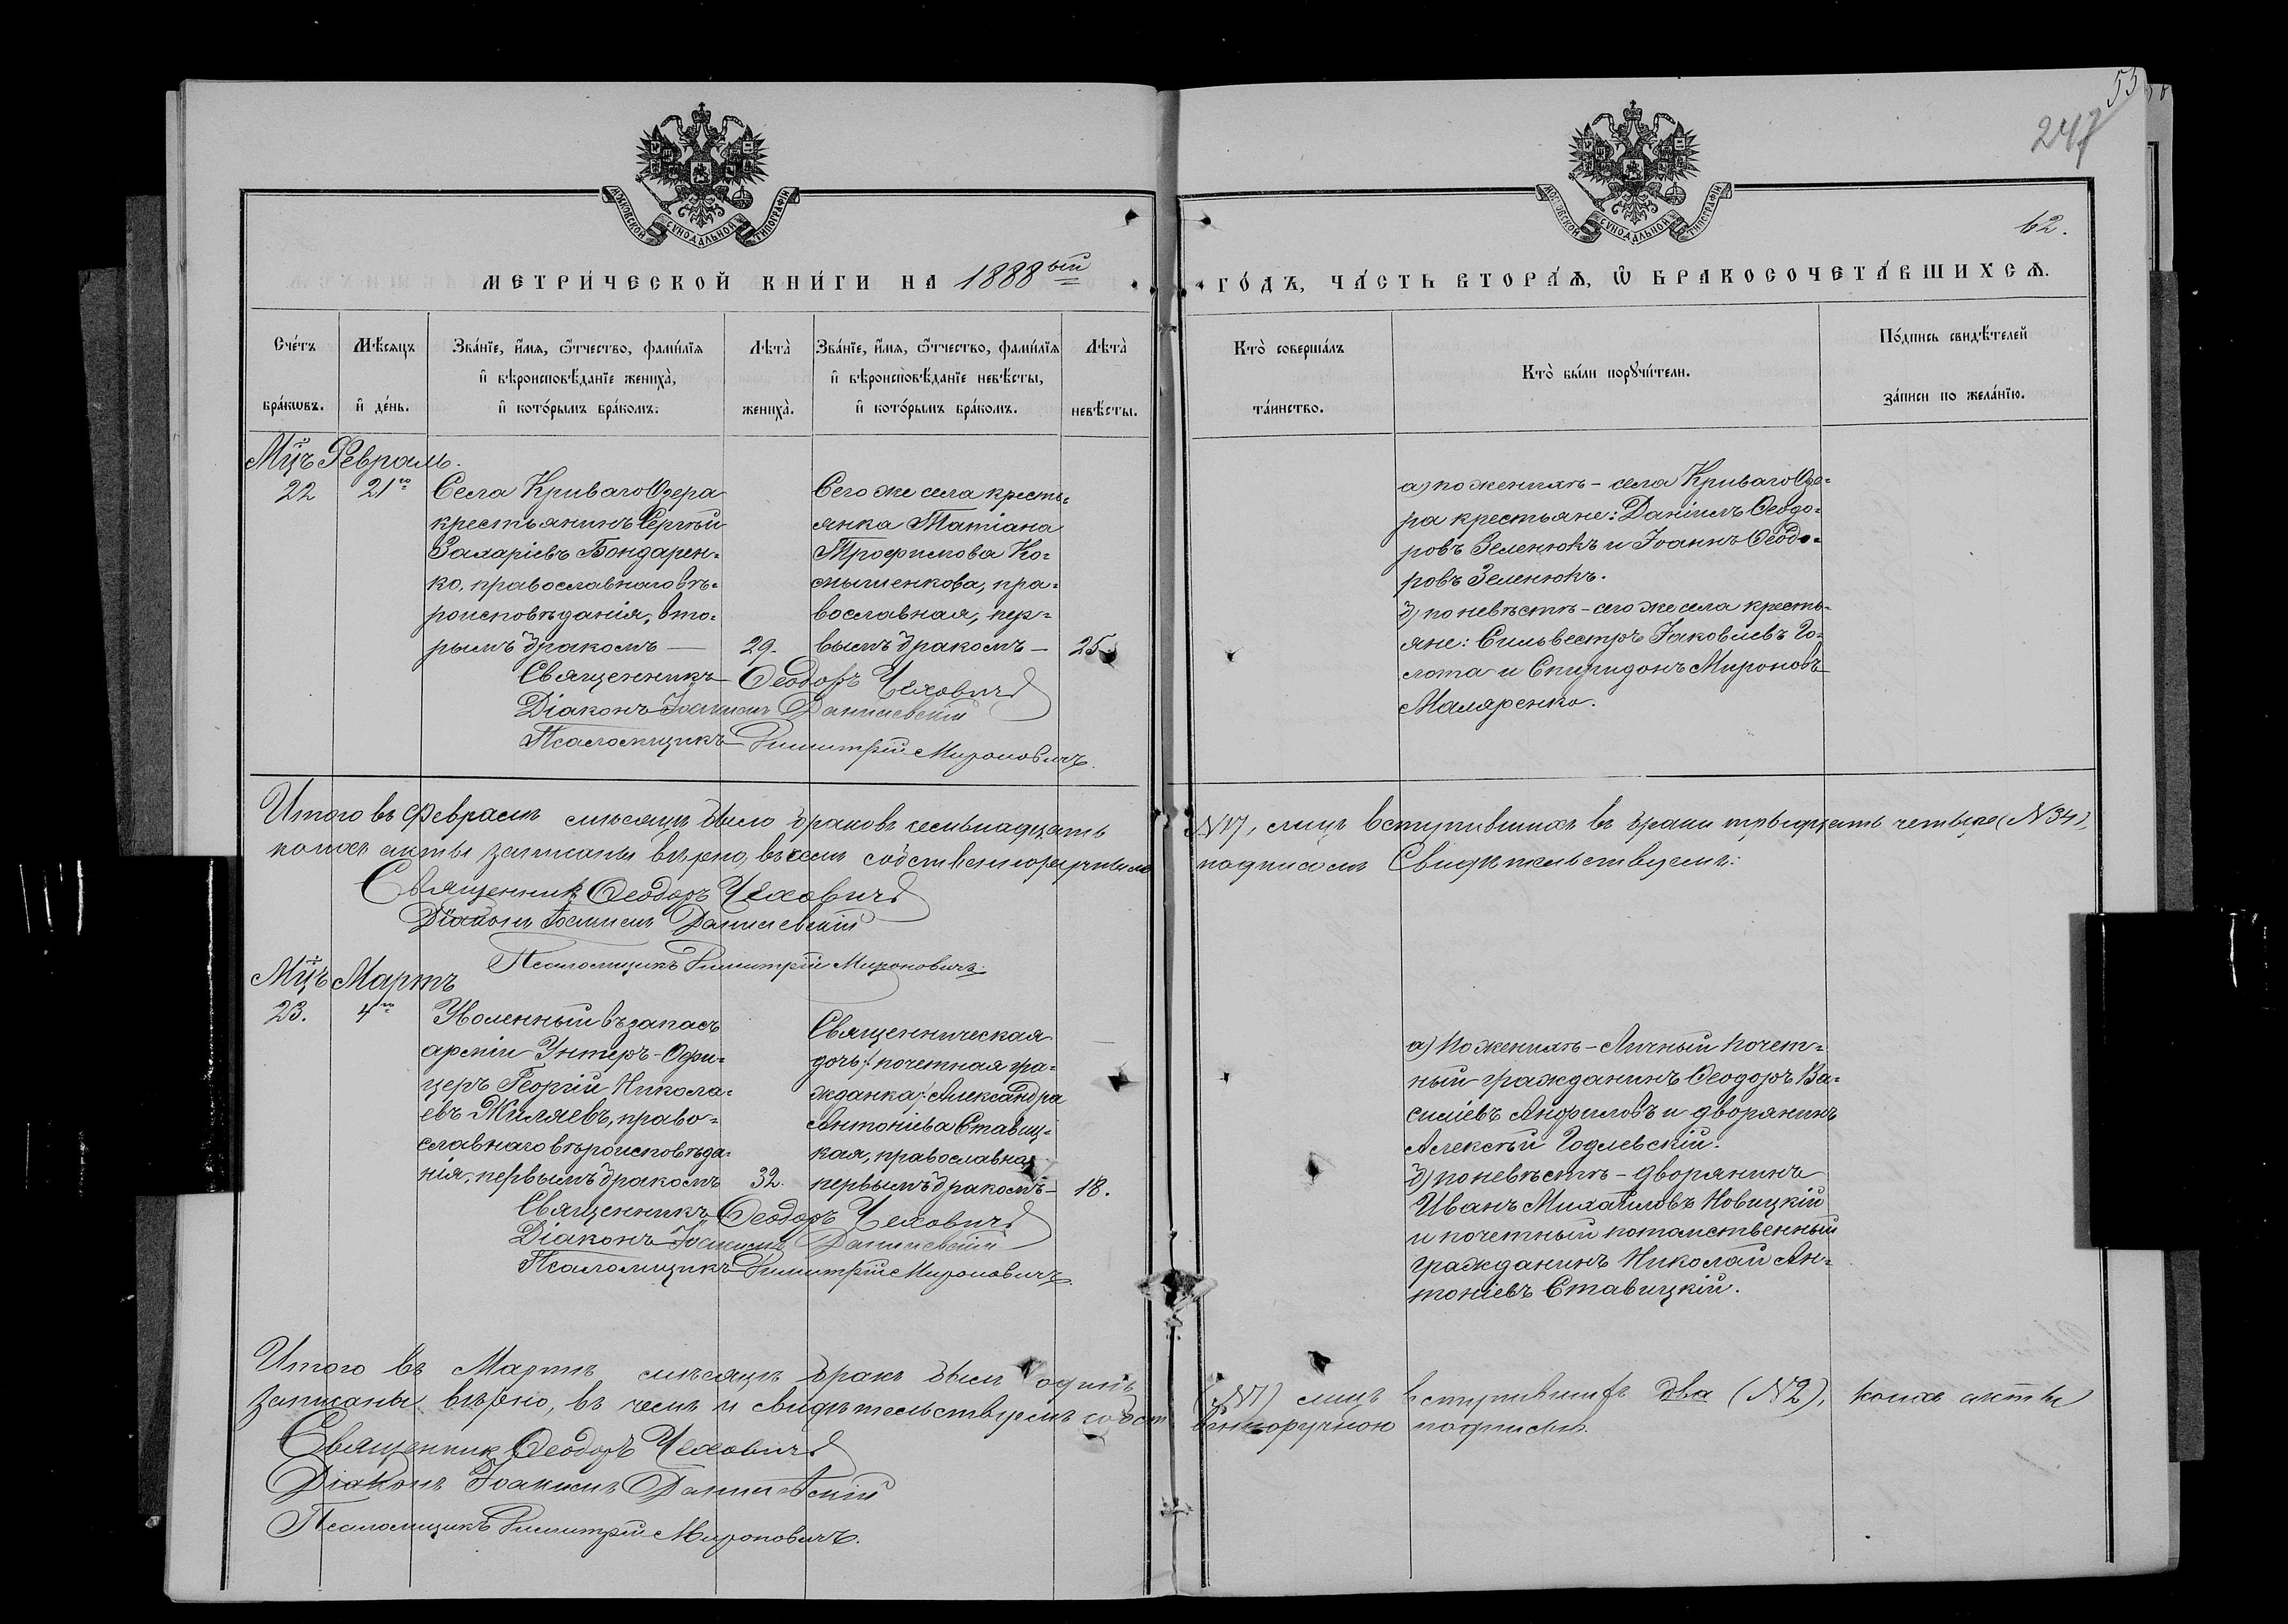 55
247
МОСКОВСКОЙ СѴНОДАЛЬНОЙ ТИПОГРАФІИ
МОСКОВСКОЙ СѴНОДАЛЬНОЙ ТИПОГРАФІИ
62.
МЕТРИ́ЧЕСКОЙ КНИ́ГИ НА 1888ый
ГО́ДЪ, ЧА́СТЬ ВТОРА́Ѧ, Ѽ БРАКОСОЧЕТА́ВШИХСѦ.
Сче́тъ
бра́кѡвъ.
Мѣ́сяцъ
и҆ де́нь.
Зва́нїе, и҆́мѧ, ѻ҆́тчество, фами́лїѧ
и҆ вѣроисповѣ́данїе жениха̀,
и҆ кото́рымъ бра́комъ.
Лѣта̀
жениха̀.
Зва́нїе, и҆́мѧ, ѻ҆́тчество, фами́лїѧ
и҆ вѣроисповѣ́данїе невѣ́сты,
и҆ кото́рымъ бра́комъ.
Лѣта̀
невѣ́сты.
Кто̀ соверша́лъ
та́инство.
Кто̀ бы́ли порꙋчи́тели.
По́дпись свидѣ́телей
за́писи по жела́нїю.
Мцъ Февраль.
22
21го
Села Криваго Озера
крестьянинъ Сергѣй
Захаріевъ Бондарен=
ко, православнаго вѣ=
роисповѣданія, вто=
рымъ бракомъ —
29.
Сего же села кресть=
янка Татіана
Трофимова Ко=
смыненкова, пра=
вославная, пер=
вымъ бракомъ —
25
а) по женихѣ – села Криваго Озе=
ра крестьяне: Даніилъ Ѳеодо=
ровъ Зеленюкъ и Іоаннъ Ѳеодо=
ровъ Зеленюкъ.
б) по невѣстѣ – сего же села кресть=
яне: Сильвестръ Іаковлевъ Го=
лота и Спиридонъ Мироновъ
Маляренко.
Священникъ Ѳеодоръ Чехович
Діаконъ Іоакимъ Данилевскій
Псаломщикъ Димитрій Мироновичъ.
Итого въ Февралѣ мѣсяцѣ было браковъ семьнадцать
N17, лицъ вступившихъ въ браки тридцать четыре (N34),
коихъ акты записаны вѣрно, въ чемъ собственноручнымъ
подписомъ Свидѣтельствуемъ:
Священникъ Ѳеодоръ Чехович
Діаконъ Іоакимъ Данилевскій
Псаломщикъ Димитрій Мироновичъ.
Мцъ Мартъ
23.
4го
Уволенный въ запасъ
арміи Унтеръ-Офи=
церъ Георгій Никола=
евъ Жиляевъ, право=
славнаго вѣроисповѣда=
нія, первымъ бракомъ
32.
Священническая
дочь /: почетная гра=
жданка :/ Александра
Антоніева Ставиц=
кая, православна
первымъ бракомъ –
18.
а) По женихѣ – Личный почет=
ный гражданинъ Ѳеодоръ Ва=
силіевъ Анфиловъ и дворянинъ
Алексѣй Годлевскій.
б) по невѣстѣ – дворянинъ
Иванъ Михайловъ Новицкій
и почетный потомственный
гражданинъ Николай Ан=
тоніевъ Ставицкій.
Священникъ Ѳеодоръ Чехович
Діаконъ Іоакимъ Данилевскій
Псаломщикъ Димитрій Мироновичъ.
Итого въ Мартѣ мѣсяцѣ бракъ былъ одинъ
(N1) лицъ вступившихъ два (N2), коихъ акты
записаны вѣрно, въ чемъ и свидѣтельствуемъ собст
венноручною подписью.
Священникъ Ѳеодоръ Чехович
Діаконъ Іоакимъ Данилевскій
Псаломщикъ Димитрій Мироновичъ.